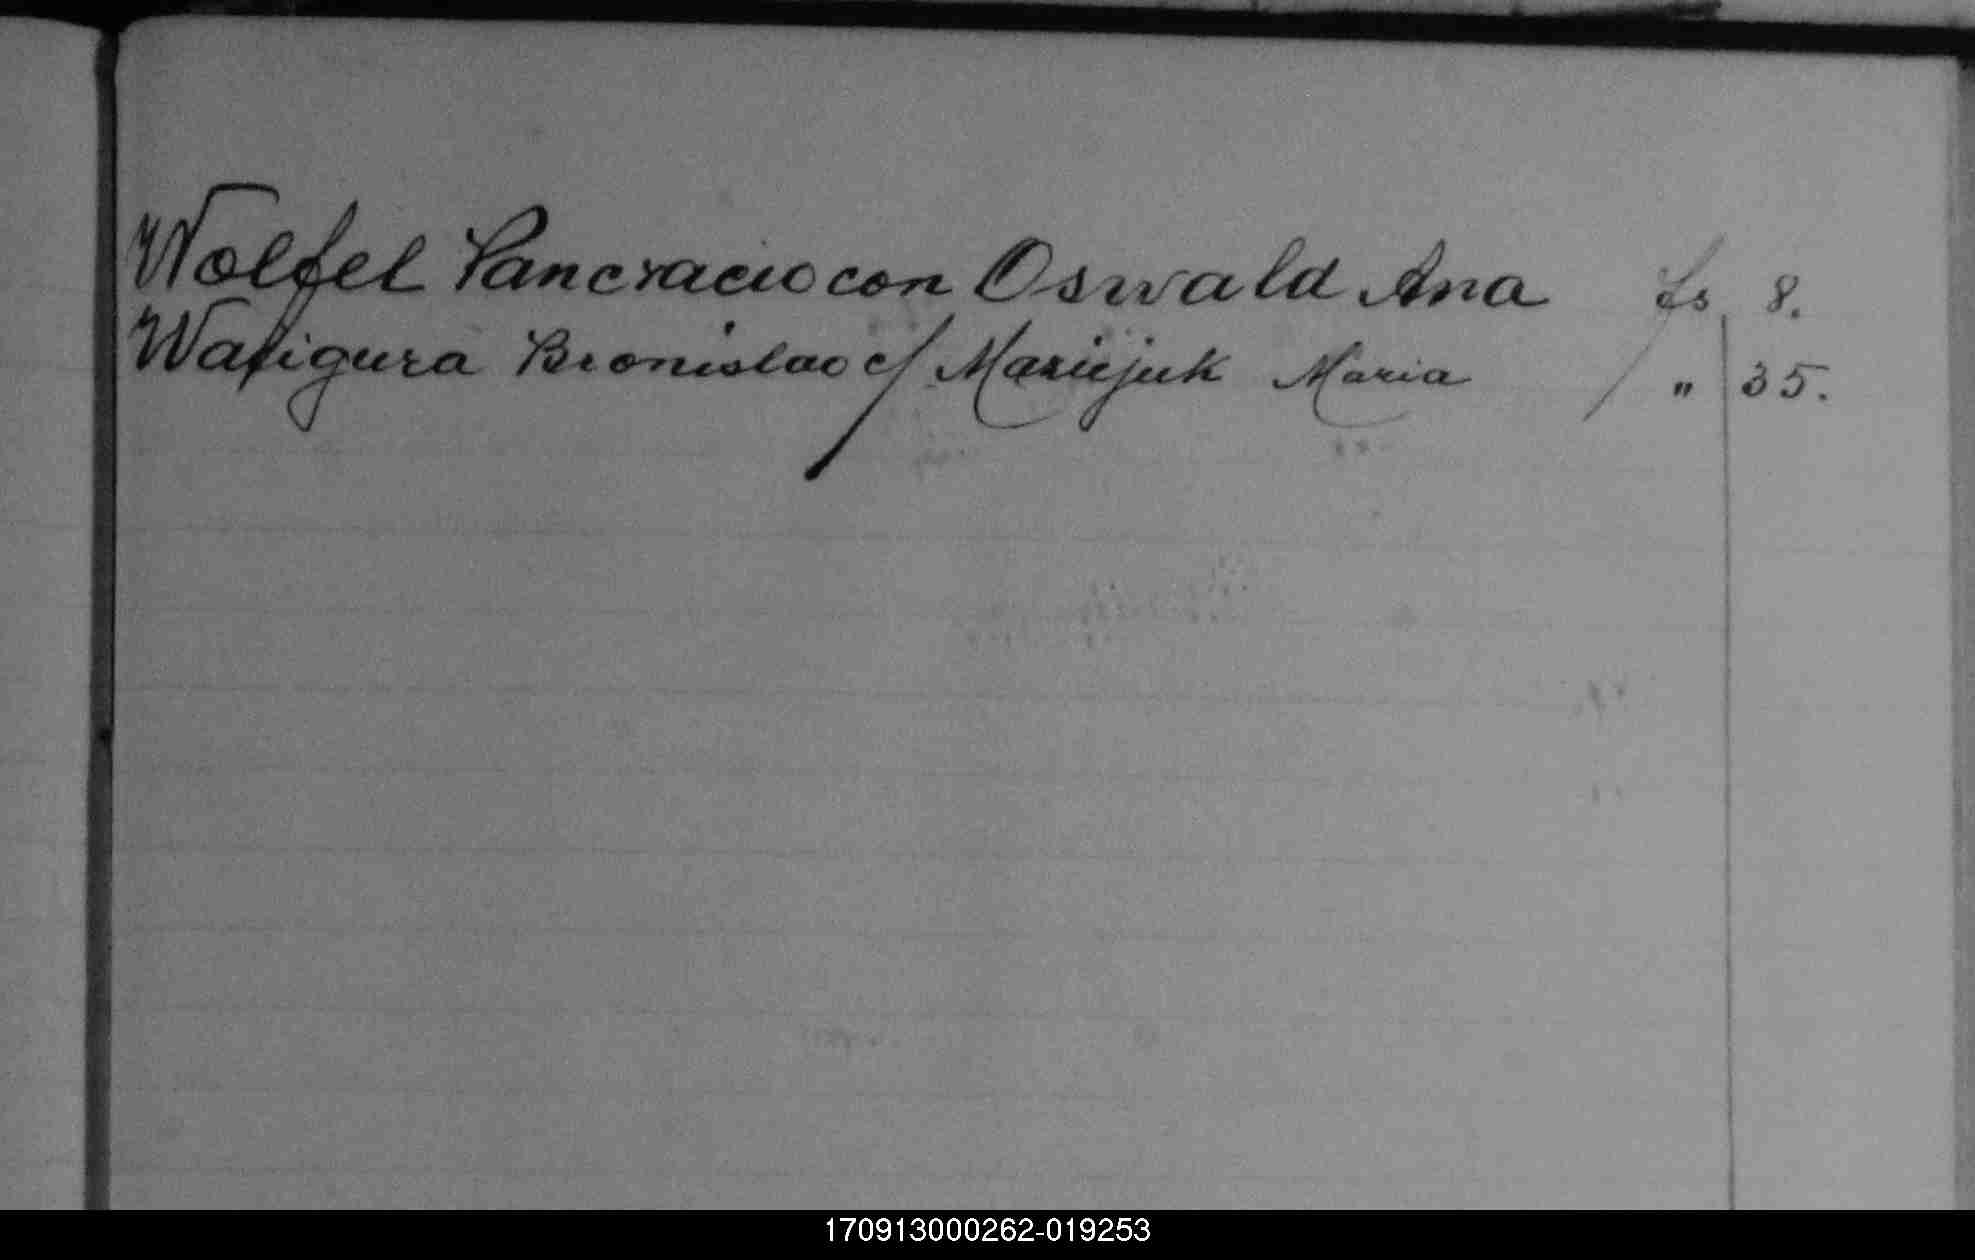 Wolfel Pancracio con Oswald Ana fs 8.
Wafigura Bronislao c/ Mariejuk Maria " 35.
170913000262-019253